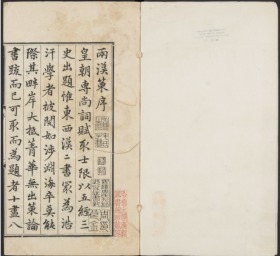 兩漢策序
皇朝專尚詞賦取士限以五經三
史出題惟東西漢二書最為浩
汗學者披閱如涉淵海卒莫能
際其畔岸大抵菁華無出策論
書疏而已可取而為題者十盡八